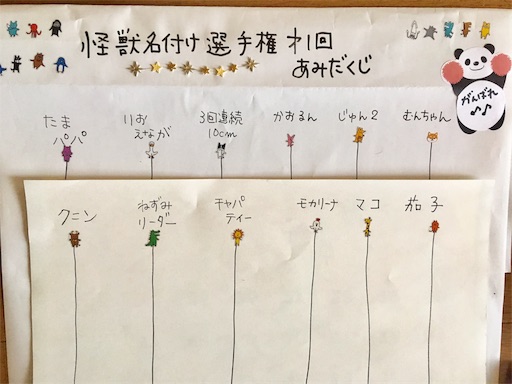 怪獣名付け選手権 才1回
あみだくじ
がんばれ
♪♪
たま
パパ
りお
えなが
3回連続
10cm
かおるん
じゅん2
むんちゃん
クニン
ねずみ
リーダー
チャパ
ティー
モカリーナ
マコ
茄子